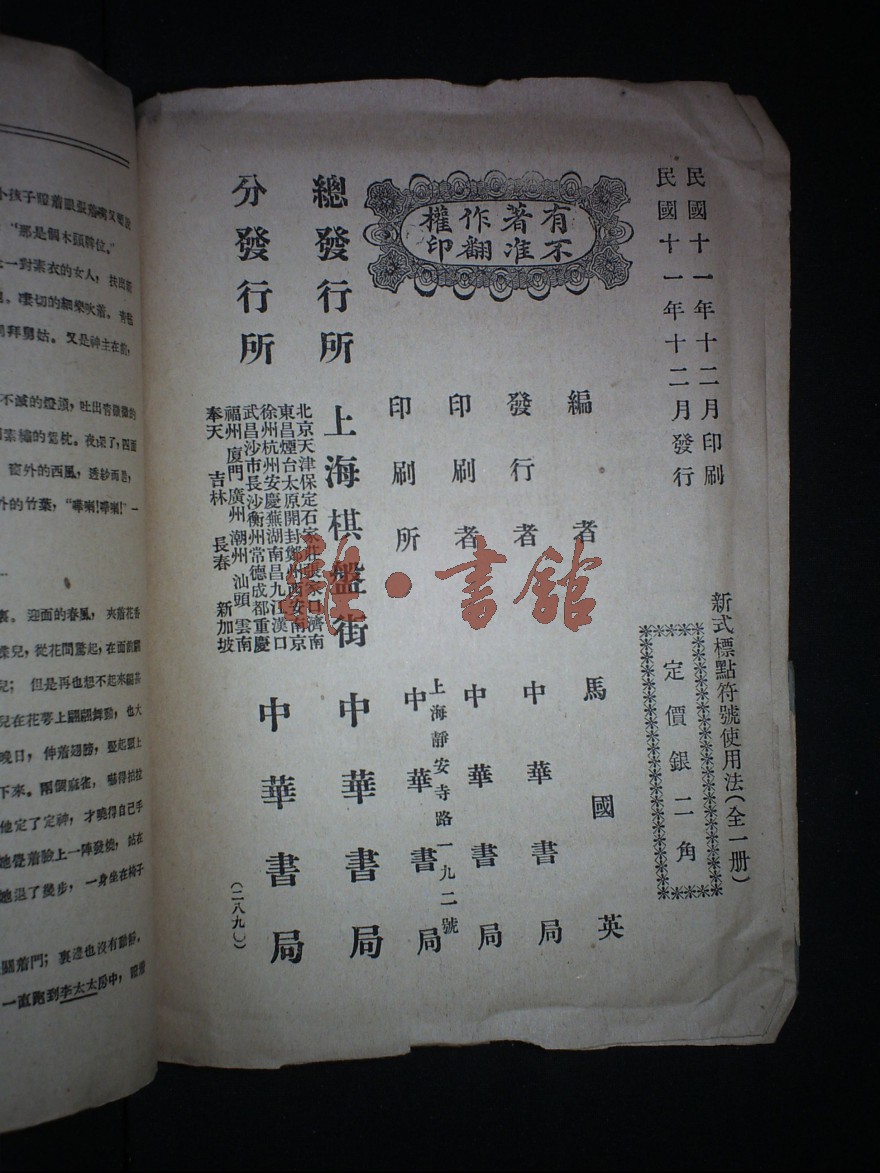 民國十一年十二月印刷
民國十一年十二月發行
新式標點符號使用法(全一册)
定價銀二角
有著作權
不准翻印
編者 馬國英
發行者 中華書局
印刷者 中華書局
上海靜安寺路一九二號
印刷所 中華書局
總發行所 上海棋盤街 中華書局
分發行所
北京天津保定石家莊張家口濟南
東昌煙台太原開封鄭州西安南京
徐州杭州安慶蕪湖南昌九江漢口
武昌沙市長沙衡州常德成都重慶
福州 廈門 廣州 潮州 汕頭 雲南
奉天 吉林 長春 新加坡
中華書局
(二八九〇)
書舘
“那是個木頭牌位。”
一對素衣的女人，扶出
凄切的細樂吹着。
拜舅姑。又是神主在前，
不滅的燈頭，吐出
素繡的鴛枕。夜深了，西面
窗外的西風，透紗而過，
外的竹葉，“嘩喇！嘩喇！”一
裏。迎面的春風，夾着花香
蝶兒，從花間驚起，在面前
兒；但是再也想不起來
兒在花蕚上翩翩舞動，也大
晚日，伸着翅膀，豎起頭上
下來。兩個麻雀，嚇得
他定了定神，才曉得自己手
她覺着臉上一陣發燒，站在
她退了幾步，一身坐在椅子
着門；裏邊也沒有動靜，
一直跑到李太太